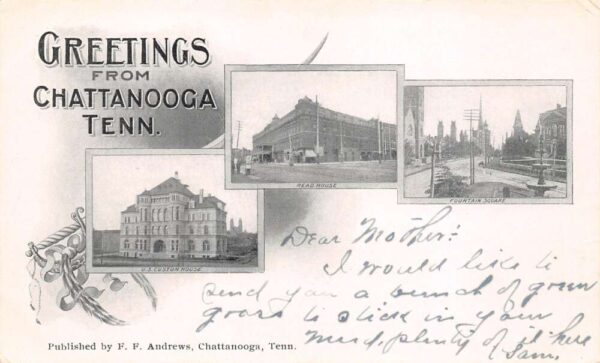 GREETINGS
FROM
CHATTANOOGA
TENN.
READ HOUSE
FOUNTAIN SQUARE
U.S. CUSTOM HOUSE
Dear Mother:
I would like to
send you a bunch of green
goars to stick in your
mud, plenty of it here
Sam.
Published by F. F. Andrews, Chattanooga, Tenn.